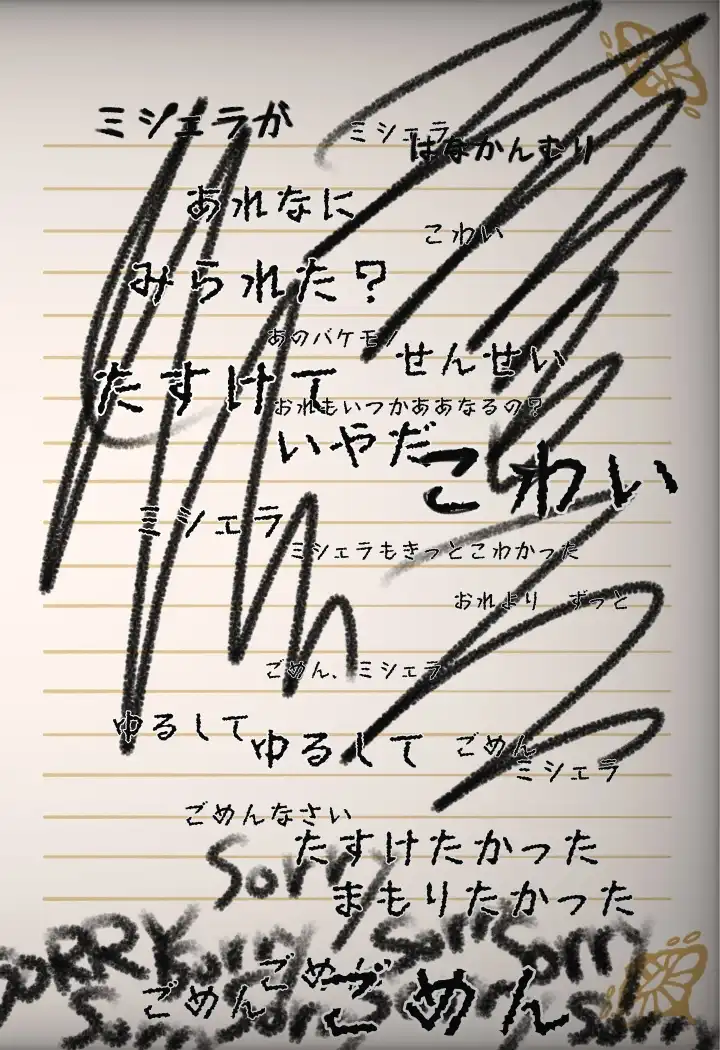 ミシェラが
ミシェラ
はなかんむり
あれなに
こわい
みられた？
あのバケモノ
せんせい
たすけて
おれもいつかああなるの？
いやだ
こわい
ミシェラ
ミシェラもきっとこわかった
おれより　ずっと
ごめん、ミシェラ
ゆるして
ゆるして
ごめん
ミシェラ
ごめんなさい
たすけたかった
Sorry
まもりたかった
SORRY
Sorry
Sorry
Sorry
ごめん
ごめん
ごめん
Sorry
Sorry
Sorry
Sorry